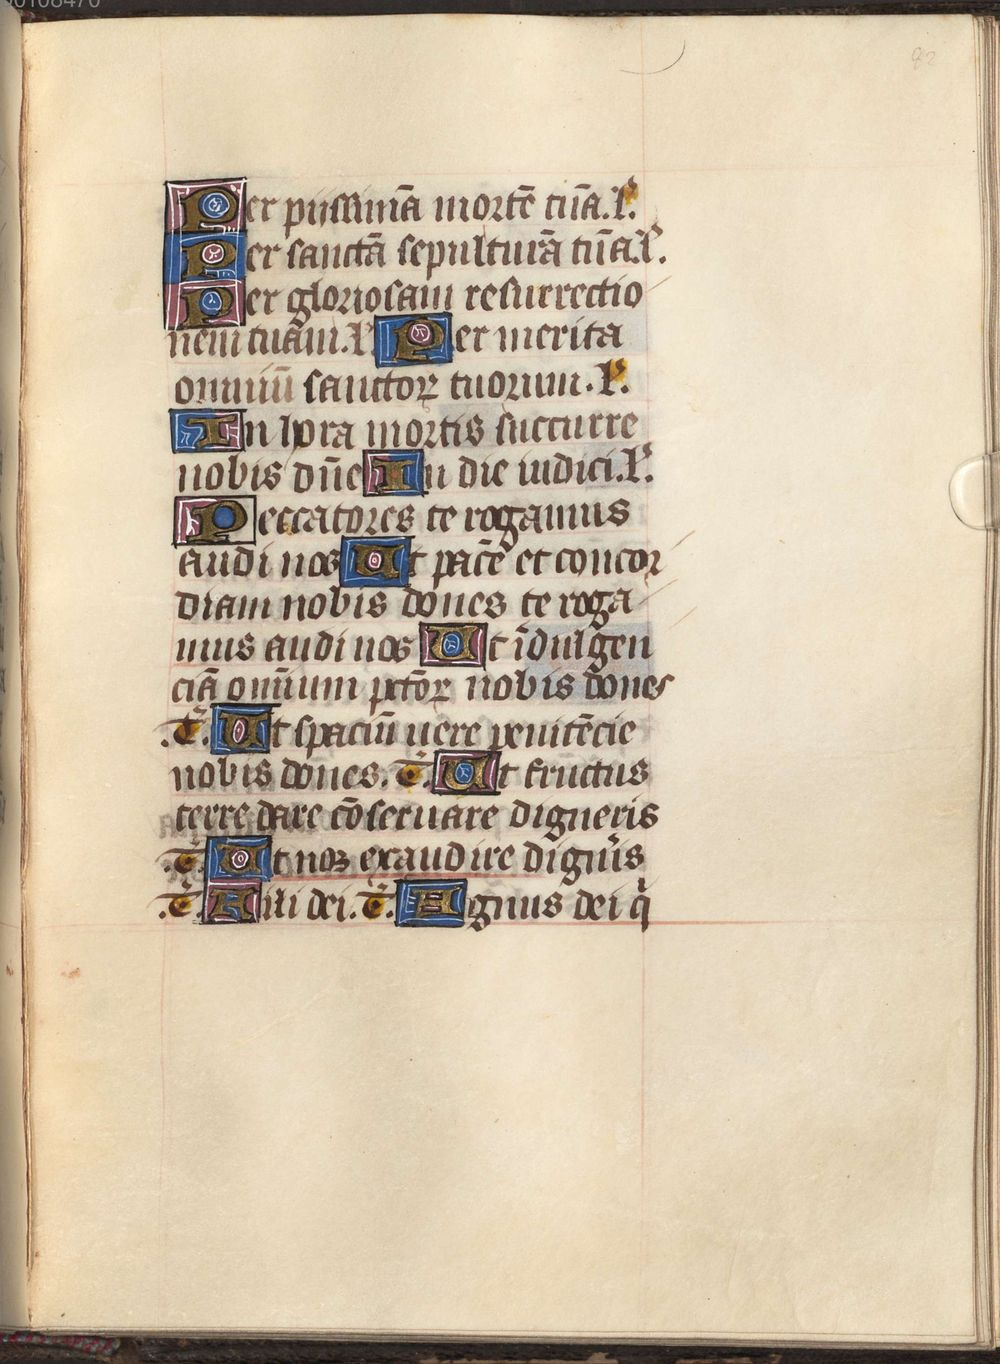 00108470
92
Per piissimā mortē tuā. P.
Per sanctā sepulturā tuā. P.
Per gloriosam resurrectio
nem tuam. P. Per merita
omniū sanctoꝝ tuorum. P.
In hora mortis succurre
nobis dñe In die iudici. P.
Peccatores te rogamus
audi nos Ut pacē et concor
diam nobis dones te roga
mus audi nos Ut īdulgen
ciā omnium pctōꝝ nobis dones
.T̄. Ut spaciū uere penitēcie
nobis dones. T̄. Ut fructus
terre dare cōseruare digneris
.T̄. Ut nos exaudire digñis
.T̄. Fili dei. T̄. Agnus dei q̄